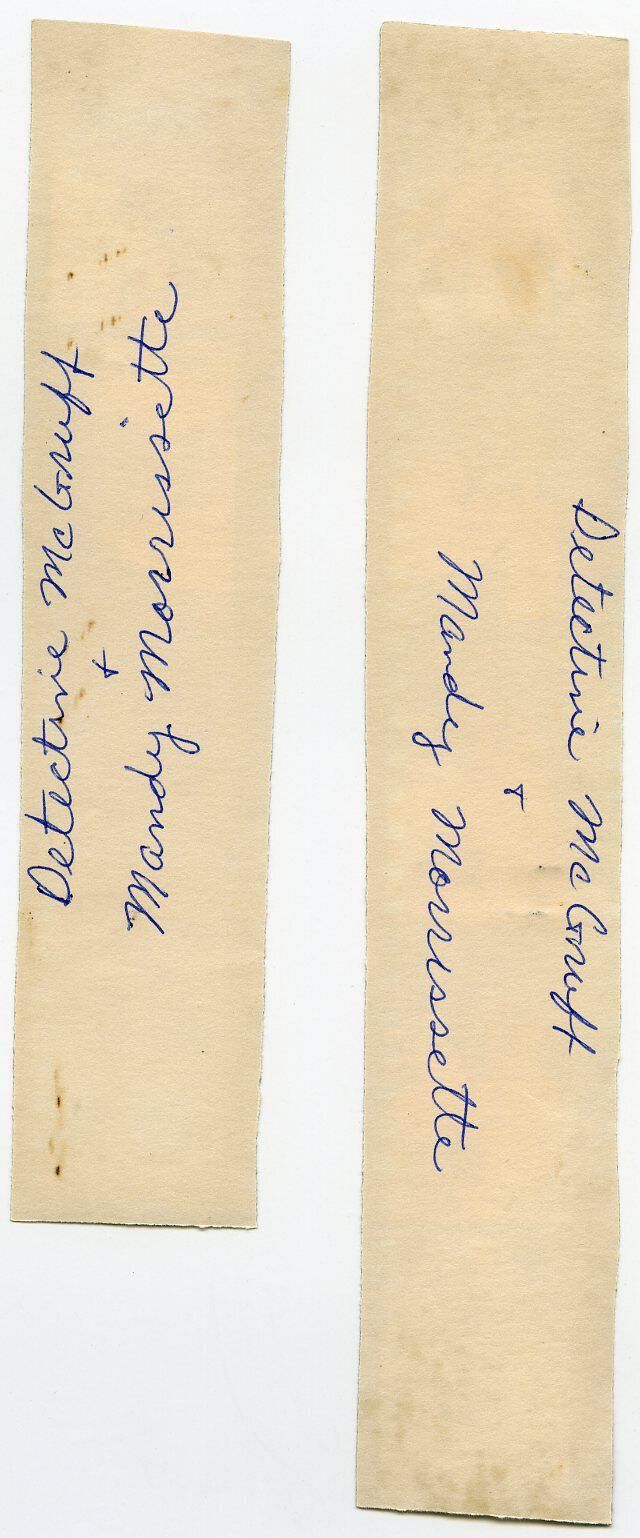 Detective McGruff
+
Mandy Morrissette
Detective McGruff
+
Mandy Morrissette